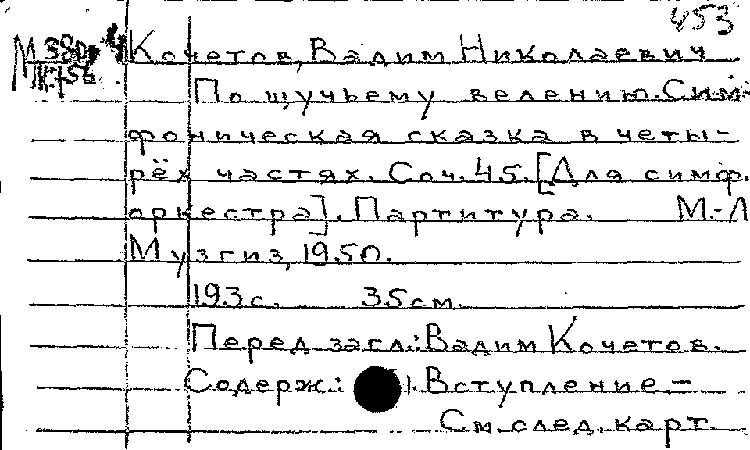 453
М 380 Кочетов, Вадим Николаевич
К 756
По щучьему велению. Сим-
фоническая сказка в четы-
рёх частях. Соч. 45. [Для симф.
оркестра]. Партитура. М.-Л
Музгиз, 1950.
193 с. 35 см.
Перед загл.: Вадим Кочетов.
Содерж.: 1. Вступление.-
См. след. карт.